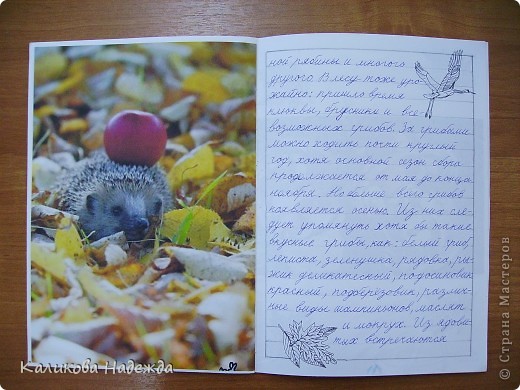 ной рябины и многого
другого. В лесу тоже уро-
жайно: пришло время
клюквы, брусники и все-
возможных грибов. За грибами
можно ходить почти круглый
год, хотя основной сезон сбора
продолжается от мая до конца
ноября. Но больше всего грибов
появляется осенью. Из них сле-
дует упомянуть хотя бы такие
вкусные грибы, как: белый гриб,
лепиота, зеленушка, рядовка, ры-
жик деликатесный, подосиновик
красный, подберёзовик, различ-
ные виды шампиньонов, маслят
и мокрух. Из ядови-
тых встречаются
Каликова Надежда
© Страна Мастеров